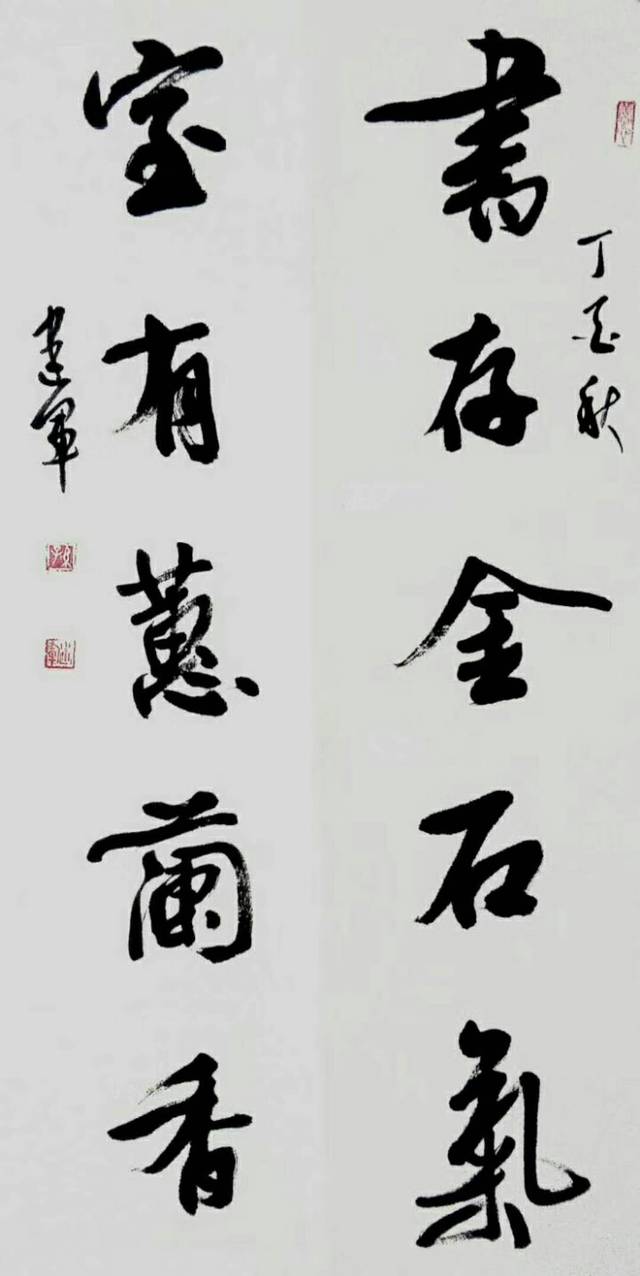 丁酉秋
書存金石氣
室有蕙蘭香
建軍